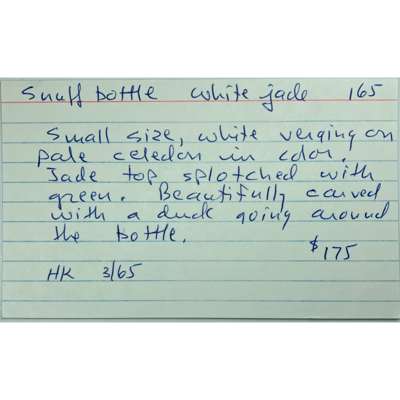 Snuff bottle white jade 165
Small size, white verging on
pale celedon in color.
Jade top splotched with
green. Beautifully carved
with a duck going around
the bottle.
$175
HK 3/65